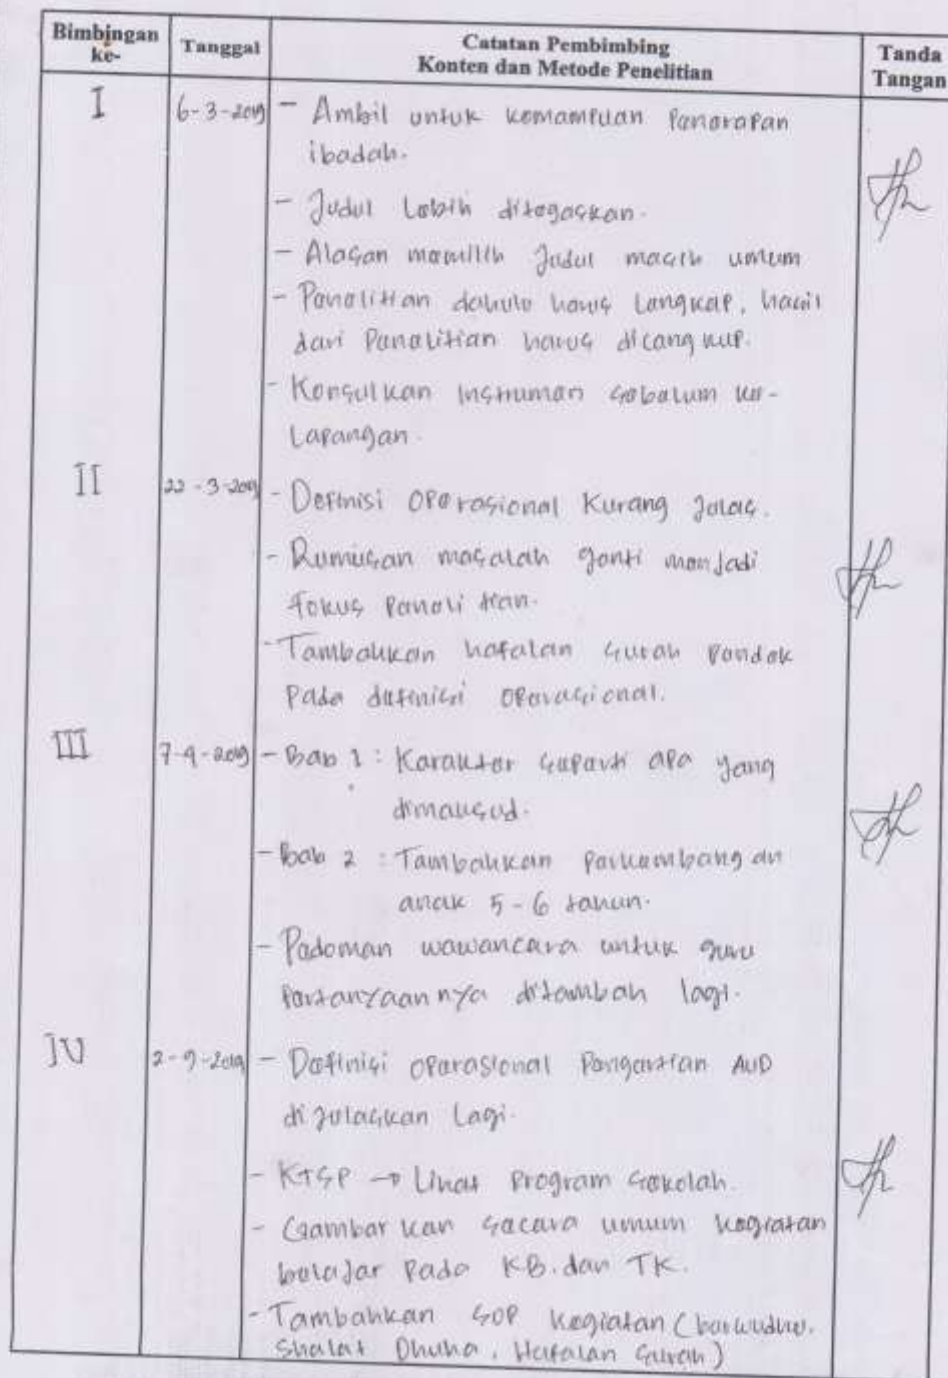 Bimbingan ke-
Tanggal
Catatan Pembimbing
Konten dan Metode Penelitian
Tanda Tangan
I
6-3-2019
- Ambil untuk kemampuan Penerapan
ibadah.
- Judul Lebih ditegaskan.
- Alasan memilih Judul masih umum
- Penelitian dahulu harus Lengkap, hasil
dari Penelitian harus dicangkup.
- Konsulkan Instrumen sebelum ke-
Lapangan.
II
22-3-2019
- Definisi Operasional Kurang Jelas.
- Rumusan masalah ganti menjadi
fokus Penelitian.
- Tambahkan hafalan surah Pendek
Pada definisi Operasional.
III
7-9-2019
- Bab 1 : Karakter seperti apa yang
dimaksud.
- Bab 2 : Tambahkan Perkembangan
anak 5-6 tahun.
- Pedoman wawancara untuk guru
Pertanyaannya ditambah lagi.
IV
2-9-2019
- Definisi Operasional Pengertian AUD
di Jelaskan Lagi.
- KTSP → Lihat Program sekolah.
- Gambarkan secara umum kegiatan
belajar Pada KB. dan TK.
- Tambahkan SOP kegiatan (berwudhu.
Shalat Dhuha, Hafalan surah)